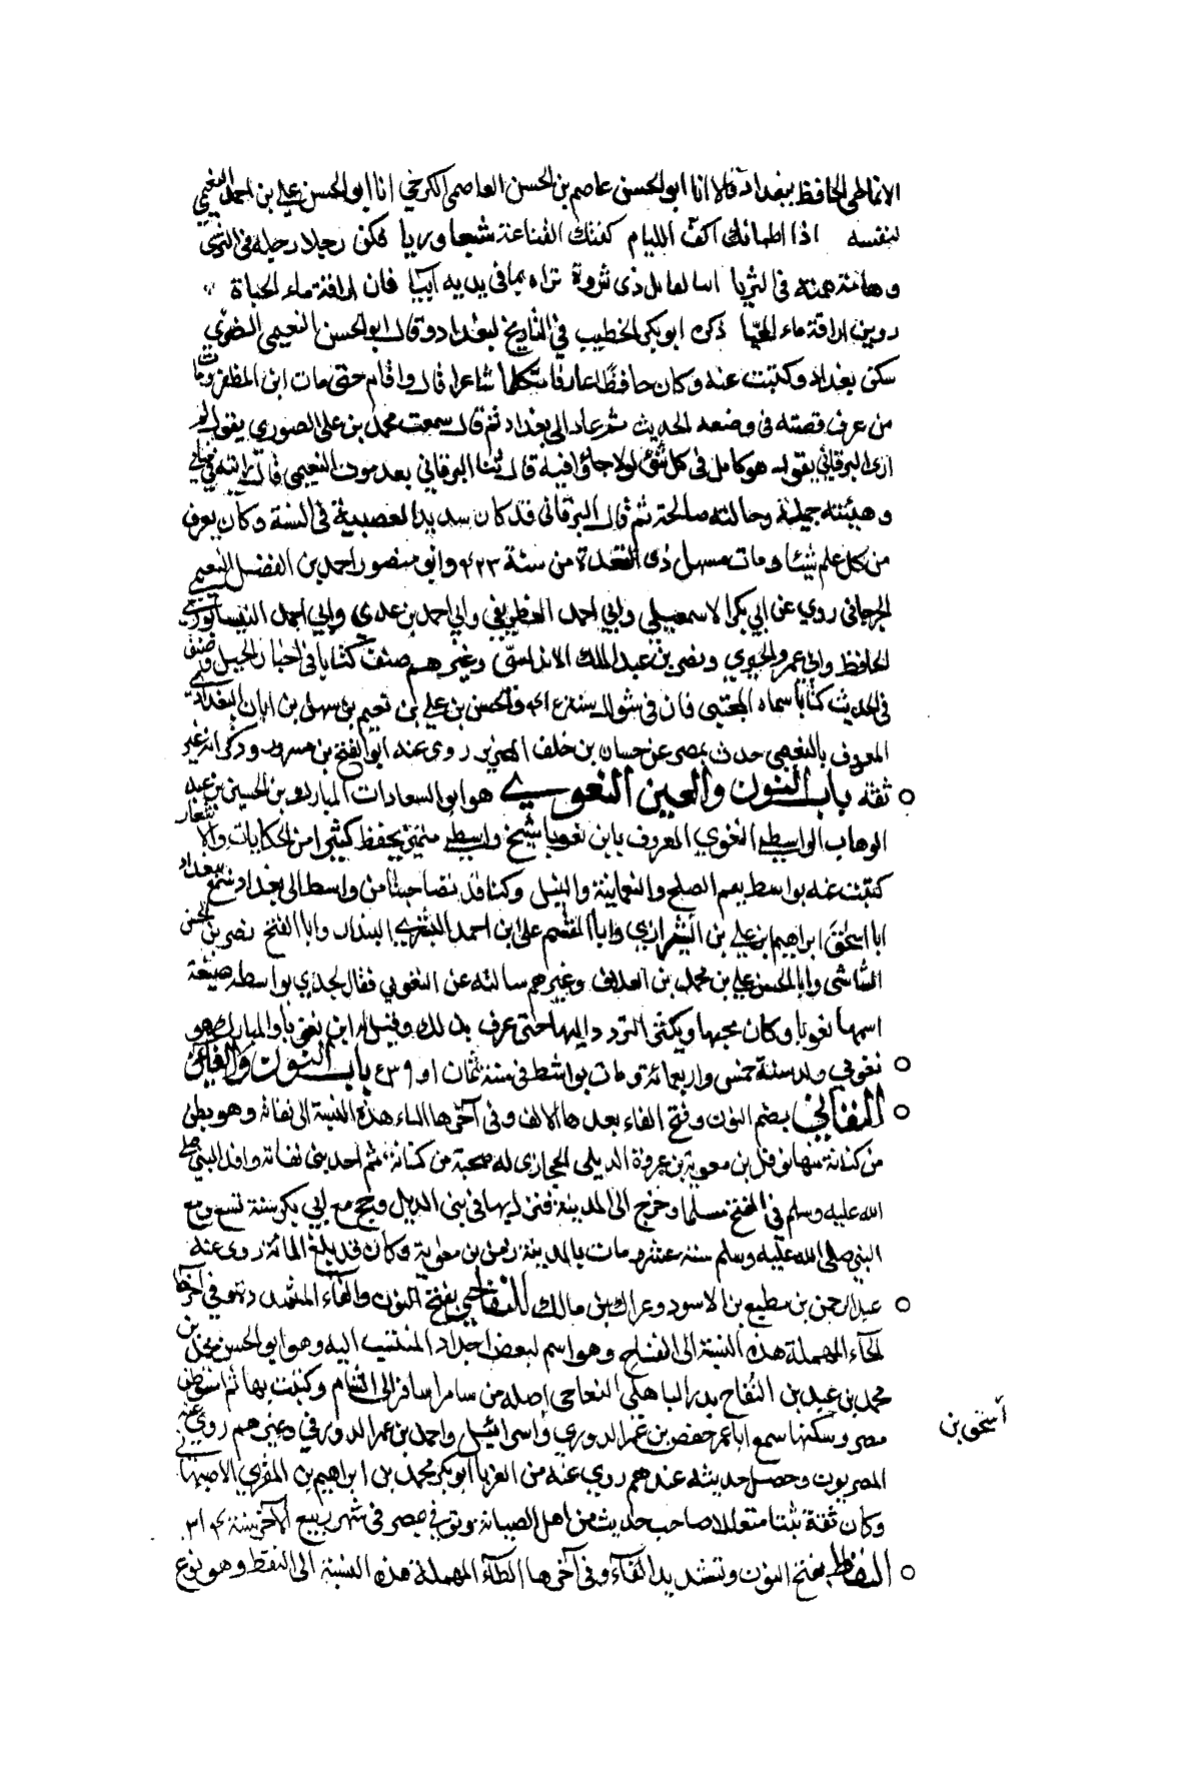 الانماطى الحافظ ببغداد قالا انا ابو الحسن عاصم بن الحسن العاصمى الكرخي انا ابو الحسن علي بن احمد النعيمي
لنفسه اذا اظمأتك اكف الليام كفتك القناعة شبعا وريا فكن رجلا رجله فى الثرى
وهامة همته فى الثريا ابيا لنايل ذى ثروة تراه بما فى يديه ابيا فان اراقة ماء الحياة
دوين اراقة ماء المحيا ذكره ابو بكر الخطيب في التاريخ لبغداد وقال ابو الحسن النعيمى البصري
سكن بغداد وكتبت عنه وكان حافظا عارفا متكلما شاعرا قال واقام حتى مات ابن المظفر ومات
من عرف قصته فى وضعه الحديث ثم عاد الى بغداد ثم قال سمعت محمد بن على الصوري يقول لم
ار البرقاني يقول هو كامل فى كل شئ لولا بأو فيه قال ثنا البرقاني بعد موت النعيمى قال رايته في
وهيئته جميلة وحالته صالحة ثم قال البرقانى قد كان شديد العصبية فى السنة وكان يعرف
من كل علم شيئا ومات مستهل ذى القعدة من سنة ۴۲۳ وابو منصور احمد بن الفضل النعيمي
الجرجانى روي عن ابي بكر الاسمعيلي وابي احمد الغطريفي وابي احمد بن عدي وابي احمد النيسابوري
الحافظ وابي عمرو الحيري ونصر بن عبد الملك الاندلسى وغيرهم صنف كتابا فى اخبار الجبل وصنف
فى الحديث كتابا سماه المجتبى فان فى شوال سنة والحسن بن علي بن نعيم بن سهل بن ابان البغدادي
المعروف بالنعيمى حدث بمصر عن حسان بن خلف الضرير روى عنه ابو الفتح بن مسرور وذكر انه غير
ثقة باب النون والغين النغوبي هو ابو السعادات المبارك بن الحسين بن عبد
الوهاب الواسطي النغوبي المعروف بابن نغوبا شيخ واسط متميز يحفظ كثيرا من الحكايات والاشعار
كتبت عنه بواسط بفم الصلح والنعمانية والنيل وكنا قد تصاحبنا من واسط الى بغداد سمع ببغداد
ابا اسحق ابراهيم بن علي بن الشيرازي وابا القسم على بن احمد البسري البندار وابا الفتح نصر بن الحسن
الشاشى وابا الحسن علي بن محمد بن العلاف وغيرهم سالته عن النغوبي فقال لجدي بواسط ضيعة
اسمها نغوبا وكان يحبها ويكثر التردد اليها حتى عرف بذلك وقيل له ابن نغوبا والمبارك هو
نغوبي ولد سنة خمس واربعمائة ومات بواسط فى سنة ثمان او باب النون والفاء
النفاثي بضم النون وفتح الفاء بعدها الالف وفى آخرها الثاء هذه النسبة الى نفاثة وهو بطن
من كنانة منها نوفل بن معوية بن عروة الديلى الحجازى له صحبة من كنانة ثم احد بنى نفاثة وافد النبي صلى
الله عليه وسلم في الفتح مسلما وخرج الى المدينة فنزلها فى بنى الديل وحج مع ابي بكر سنة تسع ومع
النبي صلى الله عليه وسلم سنة عشر ومات بالمدينة زمن بن معوية وكان قد بلغ المائة روى عنه
عبد الرحمن بن مطيع بن الاسود وعراك بن مالك النفاحي بفتح النون والفاء المشددة وفي آخرها
الحاء المهملة هذه النسبة الى النفاح وهو اسم لبعض اجداد المنتسب اليه وهو ابو الحسن محمد بن
محمد بن عبد بن النفاح بدر الباهلى النفاحى اصله من سامرا سافر الى الشام وكتب بها ثم استوطن
مصر وسكنها سمع ابا عمر حفص بن عمر الدوري واسرائيل واحمد بن عمر الدورقي وغيرهم روى عنه
اسحق بن
المصريون وحصل حديثه عندهم روي عنه من الغربا ابو بكر محمد بن ابراهيم بن المقري الاصبهاني
وكان ثقة ثبتا متقللا صاحب حديث من اهل الصيانة وتوفي بمصر فى شهر ربيع الآخر سنة ۳۱۴
النفاط بفتح النون وتشديد الفاء وفى آخرها الطاء المهملة هذه النسبة الى النفط وهو نوع